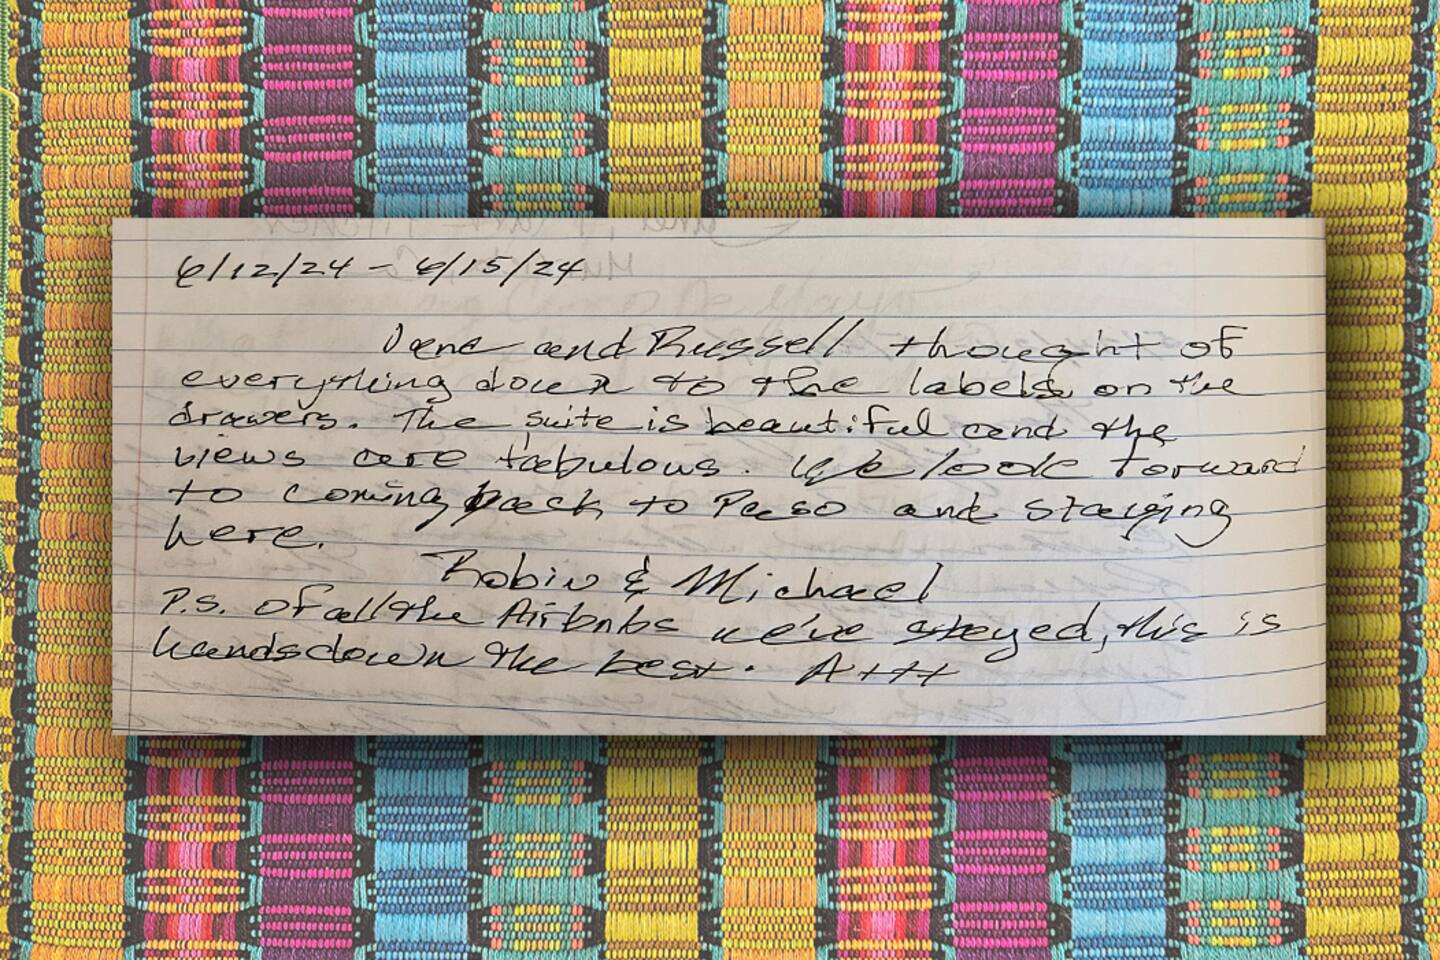 6/12/24 - 6/15/24
Jane and Russell thought of
everything down to the labels on the
drawers. The suite is beautiful and the
views are fabulous. We look forward
to coming back to Paso and staying
here.
Robin & Michael
P.S. Of all the Airbnbs we've stayed, this is
handsdown the best. A+++